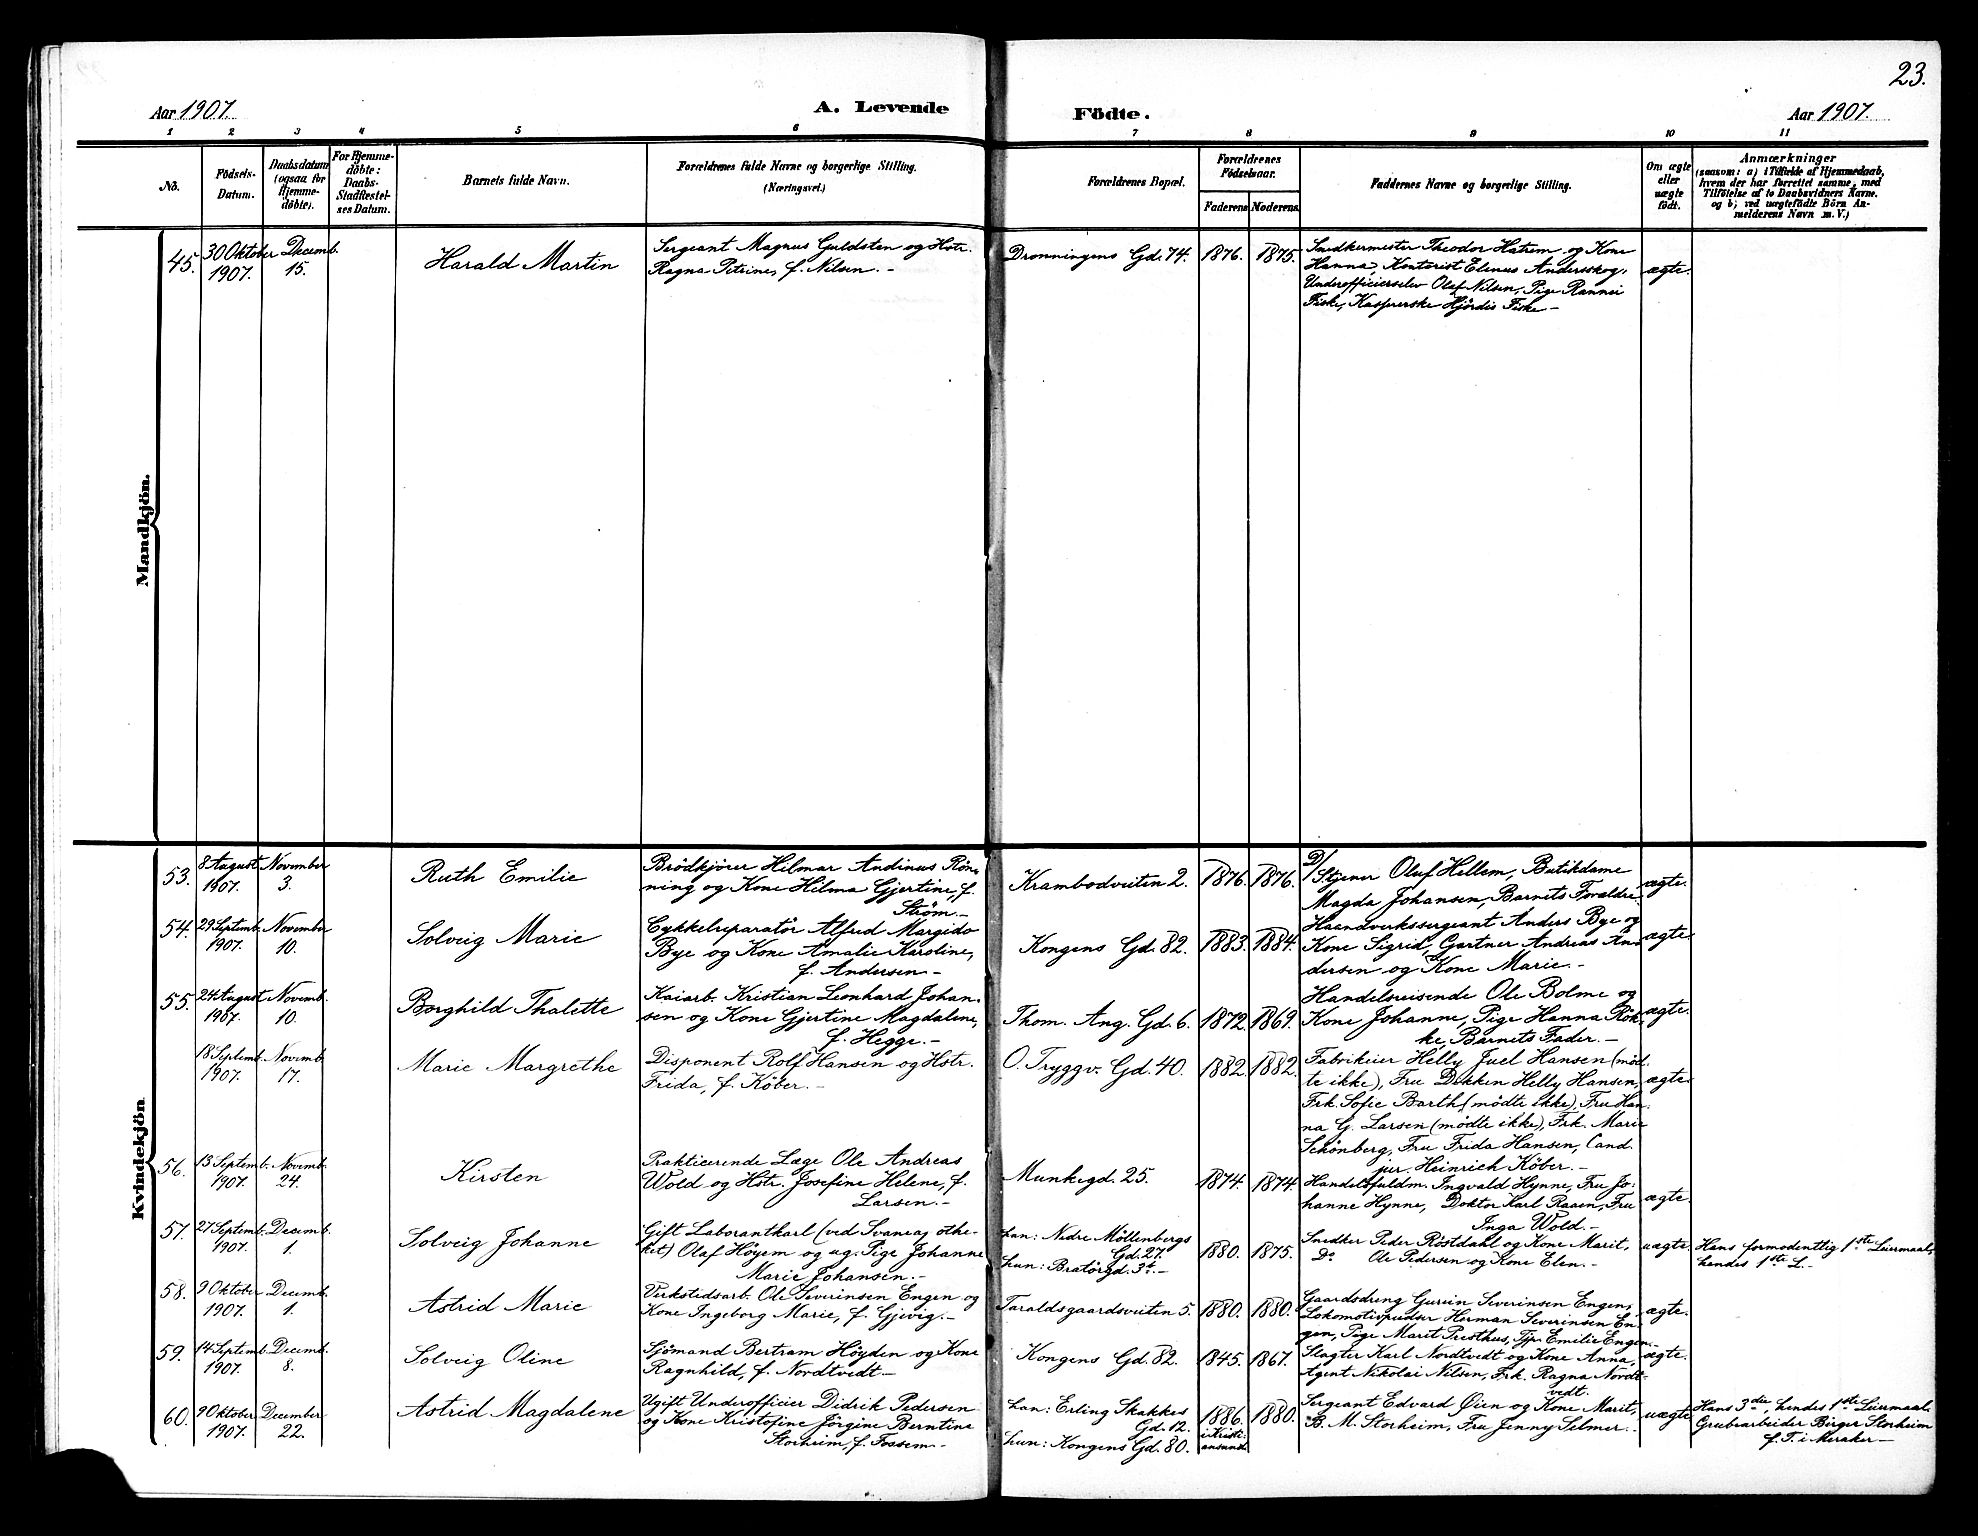 23.
Aar 1907. A. Levende Födte. Aar 1907.
1 2 3 4 5 6 7 8 9 10 11
No.
Födsels-
Datum.
Daabsdatum
(ogsaa for
Hjemme-
döbte).
For Hjemme-
döbte:
Daabs-
Stadfæstel-
ses Datum.
Barnets fulde Navn.
Forældrenes fulde Navne og borgerlige Stilling.
(Næringsvei.)
Forældrenes Bopæl.
Forældrenes
Födselsaar.
Faderens Moderens.
Faddernes Navne og borgerlige Stilling.
Om ægte
eller
uægte
födt.
Anmærkninger
(saasom: a) i Tilfælde af Hjemmedaab,
hvem der har forrettet samme, med
Tilföielse af to Daabsvidners Navne.
og b; ved uægtefödte Börn An-
melderens Navn m. V.)
Mandkjön.
45.
30 Oktober
1907.
Decemb.
15.
Harald Martin
Sergeant Magnus Guldsten og Hstr.
Ragna Petrine, f. Nilsen. -
Dronningens Gd. 74.
1876. 1875.
Snedkermester Theodor Hatrem og Kone
Hanna, Kontorist Elenus Andersskog,
Underofficierselev Olaf Nilsen, Pige Rannei
Fiske, Kaspererske Hjördis Fiske -
ægte.
Kvindekjön
53.
8 August
1907.
November
3.
Ruth Emilie
Brödkjörer Hilmar Andinus Rön-
ning og Kone Hilma Gjertine, f.
Ström -
Krambodveiten 2.
1876. 1876.
Stjener Oluf Hellem, Butikdame
Magda Johansen, Barnets Forældre.
ægte.
54.
29 Septemb.
1907.
November
10.
Solveig Marie
Cykkelreparatör Alfred Margido
Bye og Kone Amalie Karoline,
f. Andersen -
Kongens Gd. 82.
1883. 1884.
Haandverkssergeant Anders Bye og
Kone Sigrid, Gartner Andreas An-
dersen og Kone Marie. -
ægte.
55.
24 August
1907.
Novemb.
10.
Borghild Thalette
Kaiarb. Kristian Leonhard Johan-
sen og Kone Gjertine Magdalene,
f. Hegge. -
Thom. Ang. Gd. 6.
1872. 1869.
Handelsreisende Ole Bolme og
Kone Johanne, Pige Hanna Rök-
ke, Barnets Fader. -
ægte.
18 Septemb.
1907.
Novemb.
17.
Marie Margrethe
Disponent Rolf Hansen og Hstr.
Frida, f. Köber. -
O. Tryggv. Gd. 40.
1882. 1882.
Fabrikeier Helly Juel Hansen (möd-
te ikke), Fru Dokken Helly Hansen,
Frk. Sofie Barth (mödte ikke), Fru Han-
na G. Larsen (mödte ikke), Frk. Marie
Schönberg, Fru Frida Hansen, Cand
jur. Heinrich Köber. -
ægte.
56.
13 Septemb.
1907.
Novemb.
24.
Kirsten
Prakticerende Læge Ole Andreas
Wold og Hstr. Josefine Helene, f.
Larsen. -
Munkegd. 25.
1874. 1874.
Handelsfuldm. Ingvald Hynne, Fru Jo-
hanne Hynne, Doktor Karl Raaen, Fru
Inga Wold. -
ægte.
57.
27 Septemb.
1907.
Decemb.
1.
Solveig Johanne
Gift Laborantkarl (ved Svaneapothe-
ket) Olaf Höyem og ug. Pige Johanne
Marie Johansen. -
Han: Nedre Möllenbergs
Gd. 27.
Hun: Bratörgd. 3t. -
1880. 1875.
Snedker Peder Röstdahl og Kone Marit,
Do Ole Pedersen og Kone Elen. -
uægte.
Hans formodentlig 1ste Leiermaal,
hendes 1ste L. -
58.
9 Oktober
1907.
Decemb.
1.
Astrid Marie
Verkstedsarb. Ole Severinsen Engen og
Kone Ingeborg Marie, f. Gjevig. -
Taraldsgaardsveiten 5.
1880. 1880.
Gaardsdreng Gurein Severinsen Engen,
Lokomotivpudser Herman Severinsen En-
gen, Pige Marit Presthus, Tjp. Emilie Engen. -
ægte.
59.
14 Septemb.
1907.
Decemb.
8.
Solveig Oline
Sjömand Bertram Höyden og Kone
Ragnhild, f. Nordtvedt -
Kongens Gd. 82.
1845. 1867.
Slagter Karl Nordtvedt og Kone Anna,
Agent Nikolai Nilsen, Frk. Ragna Nordt-
vedt.
ægte.
60.
9 Oktober
1907.
December
22.
Astrid Magdalene
Ugift Underofficier Didrik Pedersen
og Kone Kristofine Jörgine Berntine
Storheim f. Fossem -
Han: Erling Skakkes
Gd. 12.
Hun: Kongens Gd. 80.
1886.
i Kristi-
ansund
1880.
Sergeant Edvard Øien og Kone Marit,
B. M. Storheim, Fru Jenny Selmer. -
uægte
Hans 3die, hendes 1ste Leiermaal.
Grubearbeider Birger Storheim
f. T. i Meraker -